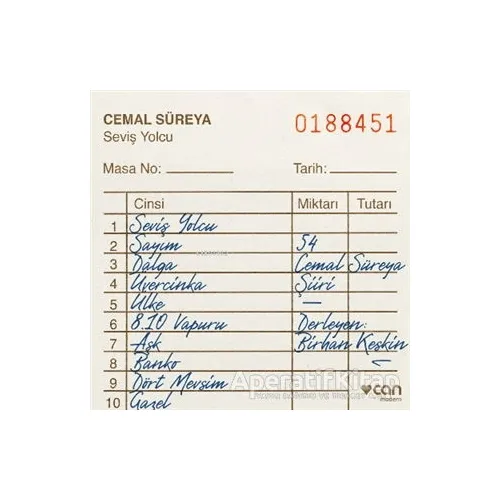 CEMAL SÜREYA
Seviş Yolcu
0188451
Masa No:
Tarih:
Cinsi Miktarı Tutarı
1 Seviş Yolcu
2 Sayım 54
3 Dalga Cemal Süreya
4 Üvercinka Şiiri
5 Ülke —
6 8.10 Vapuru Derleyen:
7 Aşk Birhan Keskin
8 Banko
9 Dört Mevsim
10 Gazel
AperatifKitap
can
modern